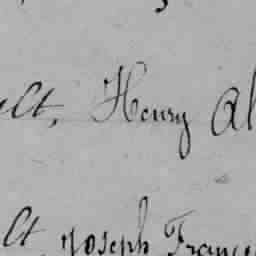 Ct, Henry Al
Ct Joseph Franç